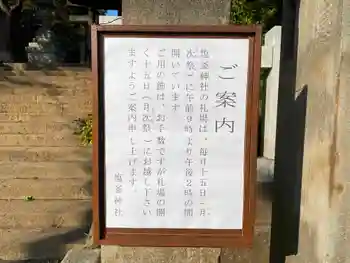 ご案内
塩釜神社の札場は、毎月十五日（月
次祭）に午前9時より午後2時の間
開いています
ご用の節は、お手数ですが札場の開
く十五日（月次祭）にお越し下さい
ますようご案内申し上げます。
塩釜神社